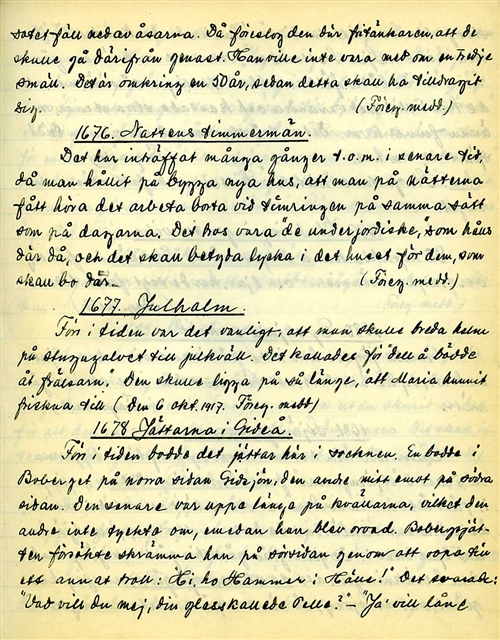 satet föll ned av åsarna. Då föreslog den där fritänkaren, att de
skulle gå därifrån genast. Han ville inte vara med om en tredje
smäll. Det är omkring en 50 år, sedan detta skall ha tilldragit
sig. (Föreg. medd.)
1676. Nattens timmermän.
Det har inträffat många gånger t.o.m. i senare tid,
då man hållit på bygga nya hus, att man på nätterna
fått höra det arbeta borta vid timringen på samma sätt
som på dagarna. Det tros vara "de underjordiske," som hålls
där då, och det skall betyda lycka i det huset för dem, som
skall bo där. (Föreg. medd.)
1677. Julhalm.
Förr i tiden var det vanligt, att man skulle breda halm
på stugugolvet till julkväll. Det kallades för dell å bädde
åt frälsarn." Den skulle ligga på så länge, "att Maria hunnit
friskna till (Den 6 okt. 1917. Föreg. medd)
1678 Jättarna i Gideå.
Förr i tiden bodde det jättar här i socknen. En bodde i
Boberget på norra sidan Gidsjön, den andre mitt emot på södra
sidan. Den senare var uppe länge på kvällarna, vilket den
andre inte tyckte om, emedan han blev orvad. Bobergsjät-
ten försökte skrämma han på sörsidan genom att ropa till
ett annat troll: "Hi, ho Hammer i Hälle!" Det svarade:
"Vad vill du mej, din glesskallede Pelle?" – "Ja' vill lånc